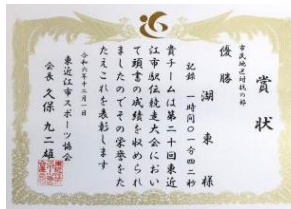 賞状
市民地区対抗の部
優勝
湖東様
記録 一時間〇一分四二秒
貴チームは第二十回東近
江市駅伝競走大会におい
て頭書の成績を収められ
ましたのでその栄誉をた
たえこれを表彰します
令和六年十二月一日
東近江市スポーツ協会
会長 久保九二雄